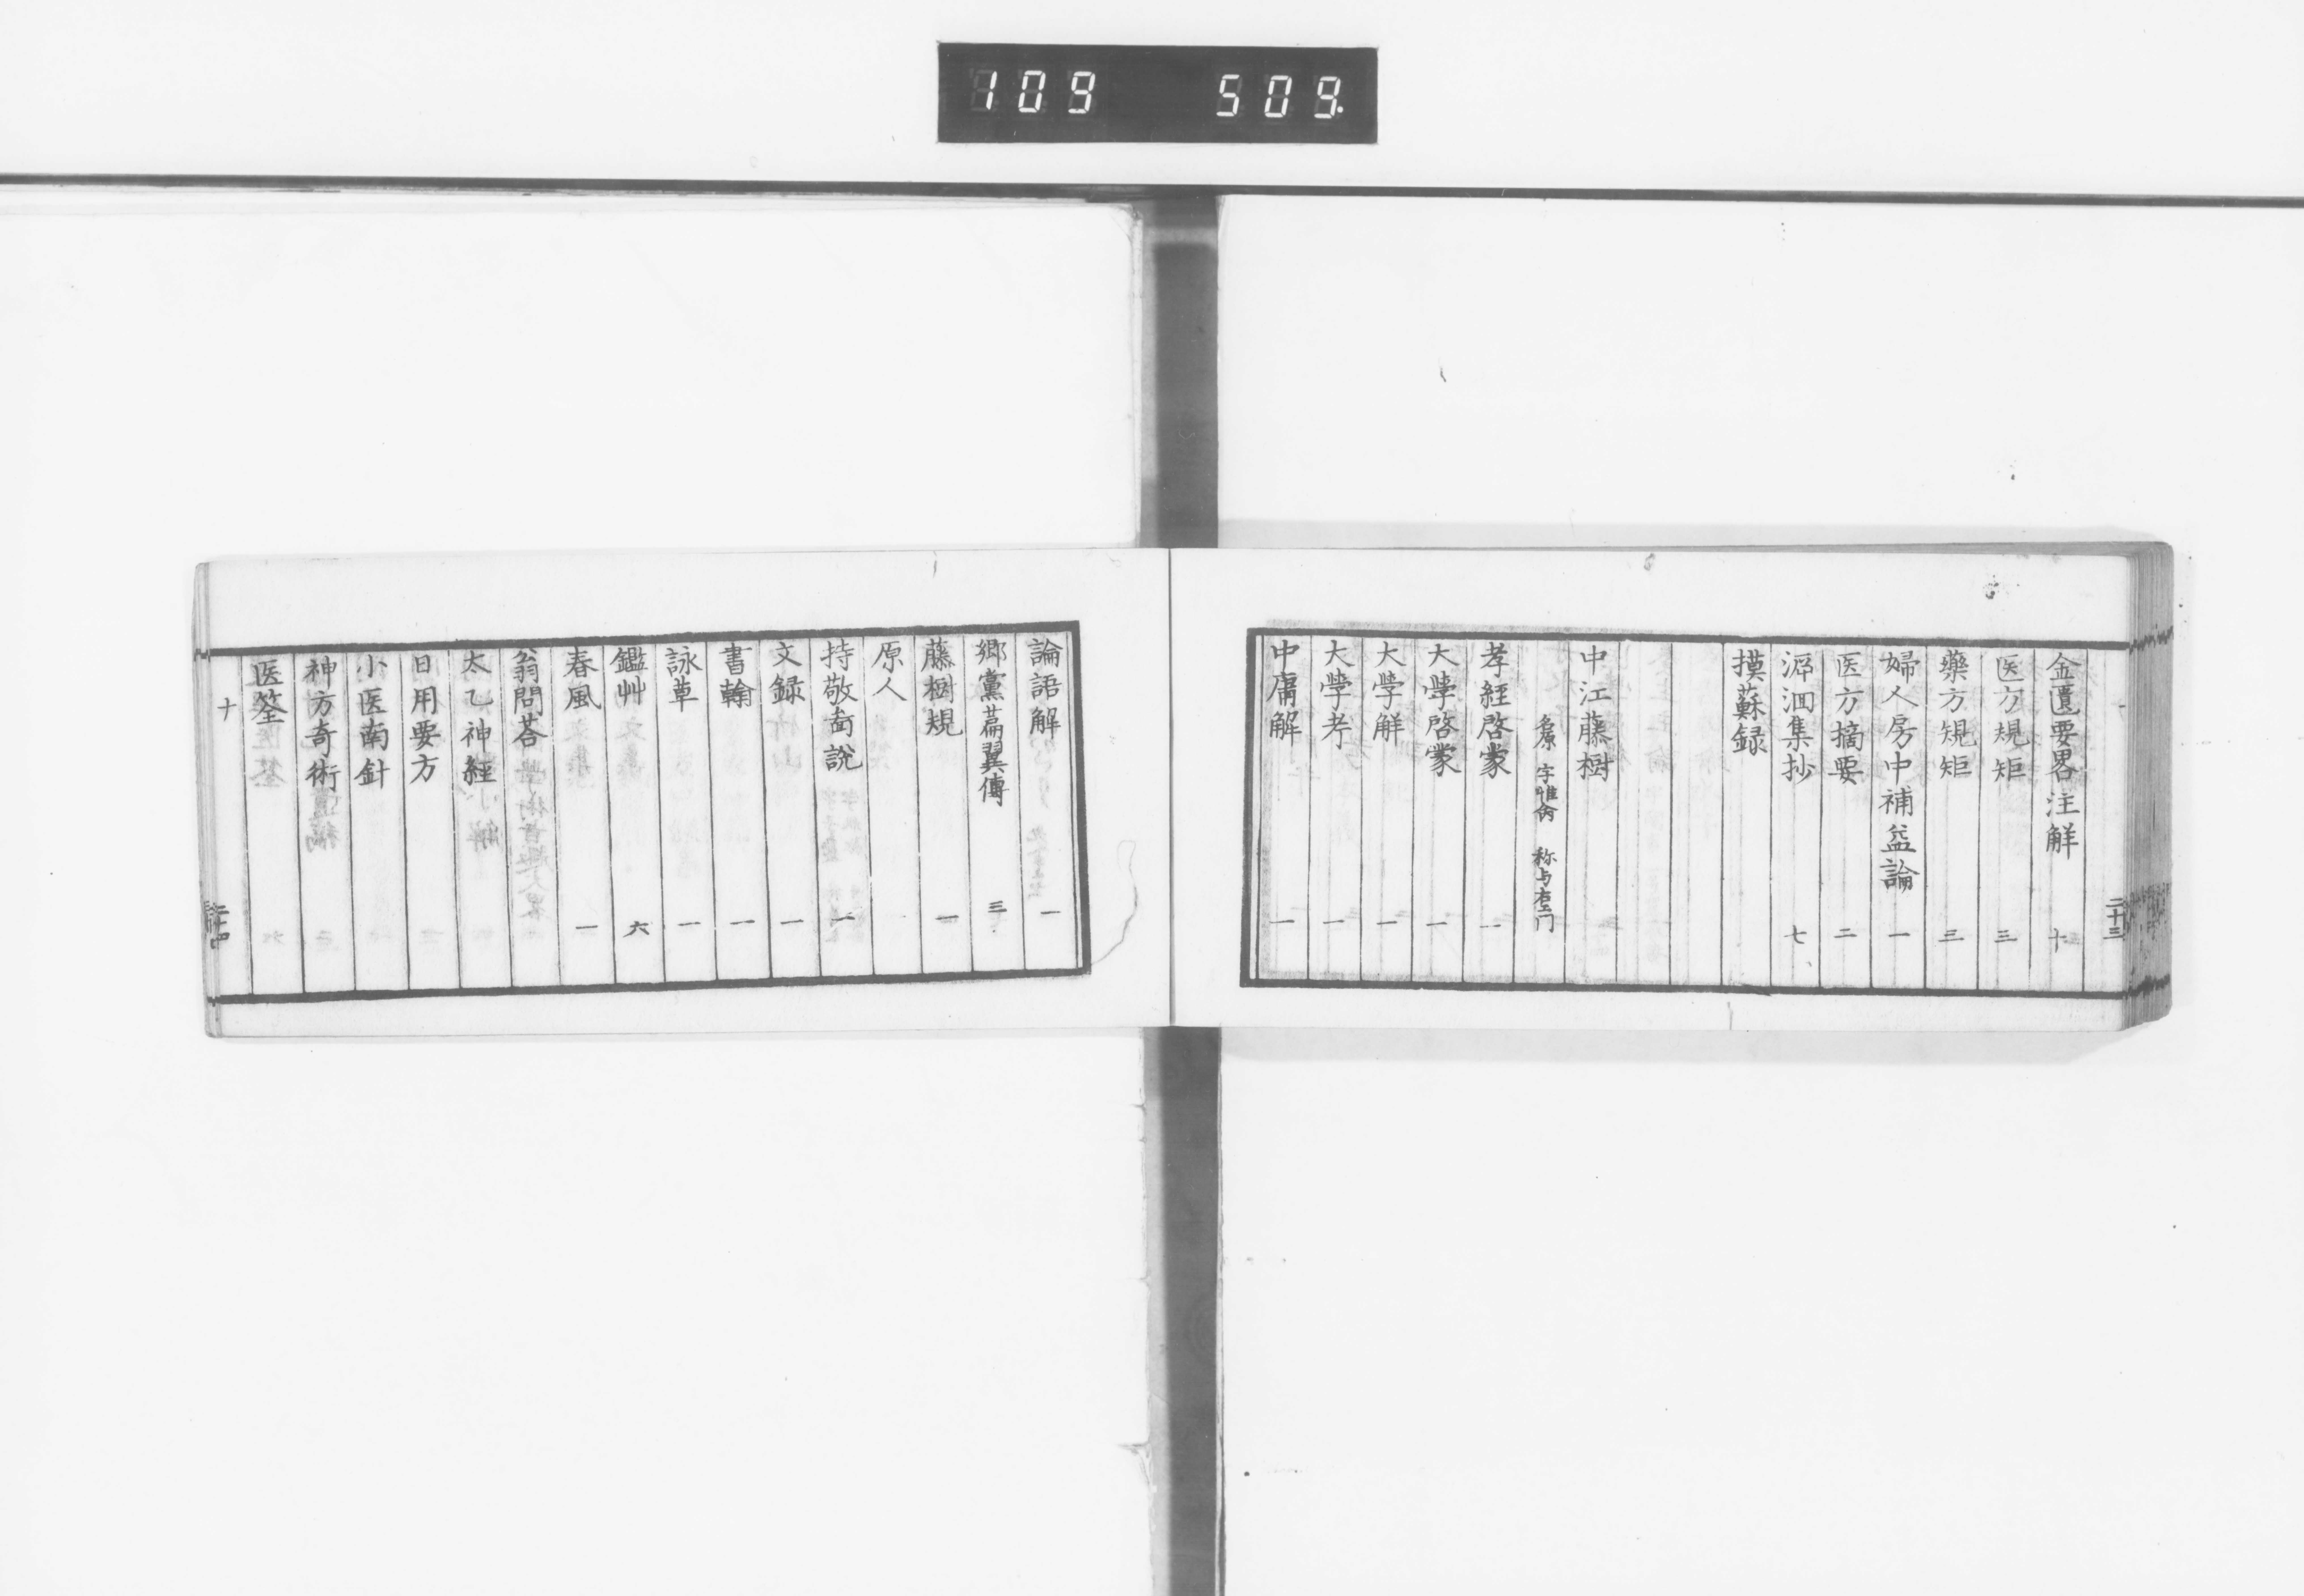 109 509.
二十三
金匱要畧注解 十
医方規矩 三
藥方規矩 三
婦人房中補益論 一
医方摘要 二
溯洄集抄 七
摸蘇録
中江藤樹
名原 字惟命 称与右エ门
孝経啓蒙 一
大學啓蒙 一
大學解 一
大學考 一
中庸解 一
論語解 一
郷黨萹翼傳 三
藤樹規 一
原人
持敬啚說 一
文録 一
書翰 一
詠草 一
鑑艸 六
春風 一
翁問荅
太乙神経
日用要方
小医南針
神方奇術
医筌
十